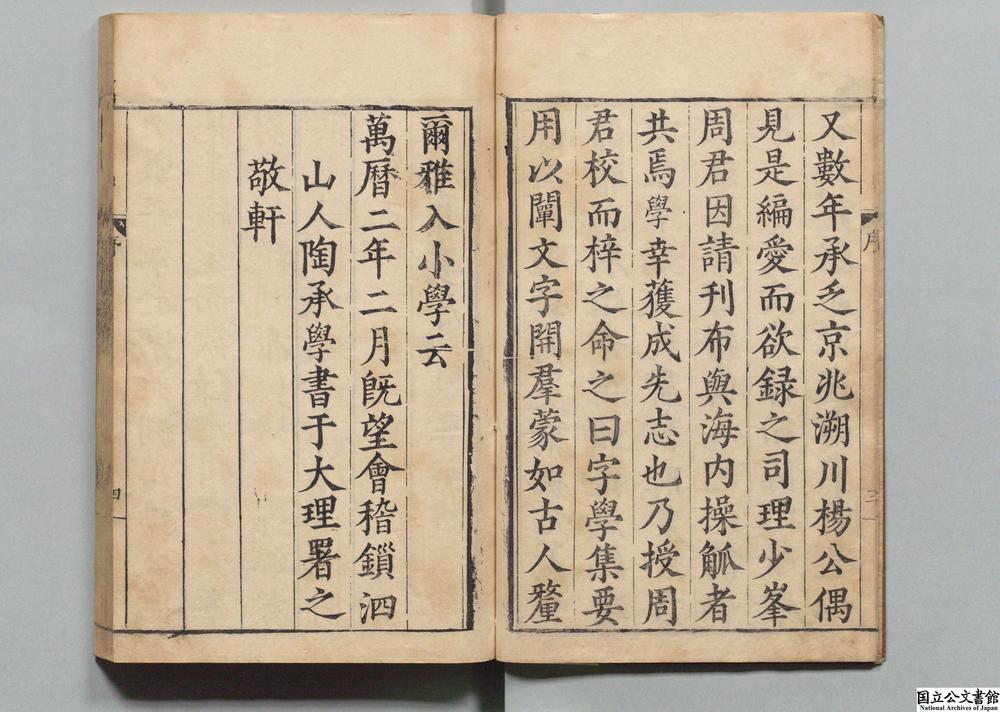 又數年承乏京兆溯川楊公偶
見是編愛而欲録之司理少峯
周君因請刊布與海内操觚者
共焉學幸蒦成先志也乃授周
君校而梓之命之曰字學集要
用以闡文字開羣蒙如古人釐
爾雅入小學云
萬曆二年二月旣望會稽鎖泗
山人陶承學書于大理署之
敬軒
序
三
四
国立公文書館
National Archives of Japan